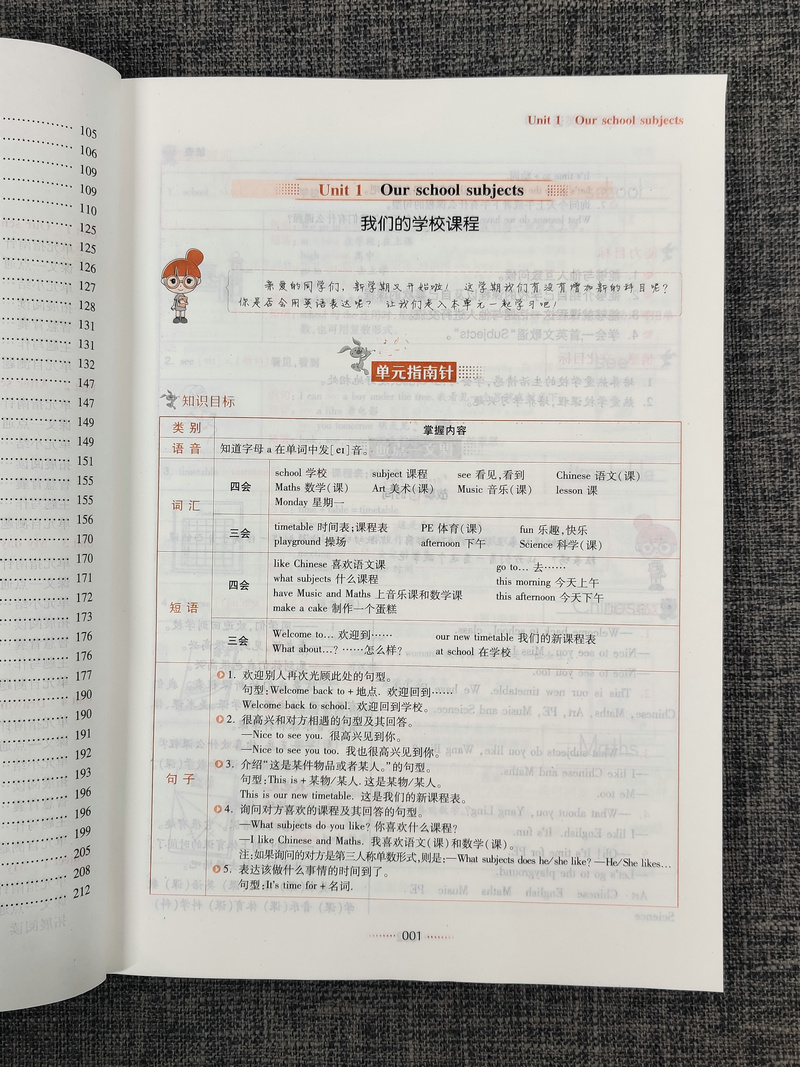 105
106
109
109
110
125
125
126
127
128
131
131
132
147
147
149
151
155
155
156
170
170
171
172
173
176
176
177
190
190
191
192
193
196
196
199
205
208
212
Unit 1 Our school subjects
Unit 1 Our school subjects
我们的学校课程
亲爱的同学们，新学期又开始啦！ 这学期我们有没有增加新的科目呢？
你是否会用英语表达呢？ 让我们走入本单元一起学习吧！
单元指南针
知识目标
类别 掌握内容
语音 知道字母 a 在单词中发[eɪ]音。
词汇 四会 school 学校 subject 课程 see 看见,看到 Chinese 语文(课)
Maths 数学(课) Art 美术(课) Music 音乐(课) lesson 课
Monday 星期一
三会 timetable 时间表;课程表 PE 体育(课) fun 乐趣,快乐
playground 操场 afternoon 下午 Science 科学(课)
短语 四会 like Chinese 喜欢语文课 go to… 去……
what subjects 什么课程 this morning 今天上午
have Music and Maths 上音乐课和数学课 this afternoon 今天下午
make a cake 制作一个蛋糕
三会 Welcome to… 欢迎到…… our new timetable 我们的新课程表
What about…? ……怎么样? at school 在学校
句子 1. 欢迎别人再次光顾此处的句型。
句型:Welcome back to + 地点. 欢迎回到……
Welcome back to school. 欢迎回到学校。
2. 很高兴和对方相遇的句型及其回答。
—Nice to see you. 很高兴见到你。
—Nice to see you too. 我也很高兴见到你。
3. 介绍“这是某件物品或者某人。”的句型。
句型:This is + 某物/某人. 这是某物/某人。
This is our new timetable. 这是我们的新课程表。
4. 询问对方喜欢的课程及其回答的句型。
—What subjects do you like? 你喜欢什么课程?
—I like Chinese and Maths. 我喜欢语文(课)和数学(课)。
注:如果询问的对方是第三人称单数形式,则是:—What subjects does he/she like? —He/She likes…
5. 表达该做什么事情的时间到了。
句型:It's time for + 名词.
001